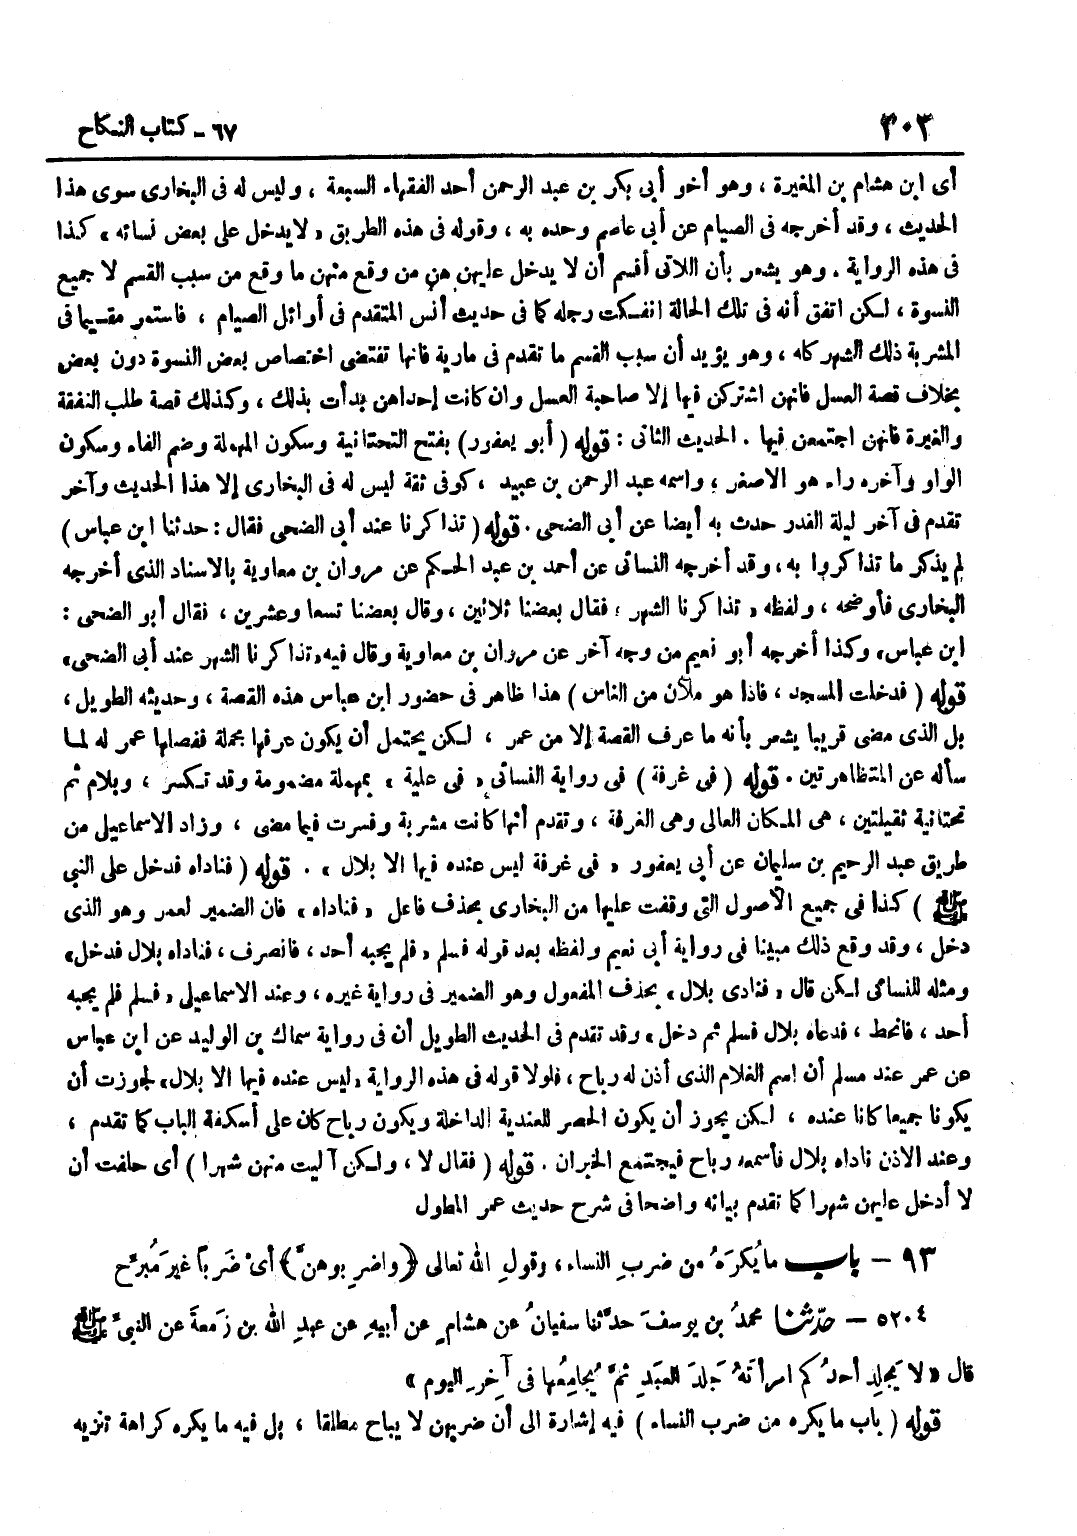 ٣٠٣
٦٧ - كتاب النكاح
أى ابن هشام بن المغيرة ، وهو أخو أبى بكر بن عبد الرحمن أحد الفقهاء السبعة ، وليس له فى البخارى سوى هذا
الحديث ، وقد أخرجه فى الصيام عن أبى عاصم وحده به ، وقوله فى هذه الطريق « لا يدخل على بعض نسائه » كذا
فى هذه الرواية . وهو يشعر بأن اللاتى أقسم أن لا يدخل عليهن هن من وقع منهن ما وقع من سبب القسم لا جميع
النسوة ، لكن اتفق أنه فى تلك الحالة انفكت رجله كما فى حديث أنس المتقدم فى أوائل الصيام ، فاستمر مقيما فى
المشربة ذلك الشهر كله ، وهو يؤيد أن سبب القسم ما تقدم فى مارية فانها تقتضى اختصاص بعض النسوة دون بعض
بخلاف قصة العسل فانهن اشتركن فيها إلا صاحبة العسل وان كانت إحداهن بدأت بذلك ، وكذلك قصة طلب النفقة
والغيرة فانهن اجتمعن فيها . الحديث الثانى : قوله ( أبو يعفور ) بفتح التحتانية وسكون المهملة وضم الفاء وسكون
الواو وآخره راء هو الاصغر ، واسمه عبد الرحمن بن عبيد ، كوفى ثقة ليس له فى البخارى إلا هذا الحديث وآخر
تقدم فى آخر ليلة القدر حدث به أيضا عن أبى الضحى . قوله ( تذاكرنا عند أبى الضحى فقال : حدثنا ابن عباس )
لم يذكر ما تذاكروا به ، وقد أخرجه النسائى عن أحمد بن عبد الحكم عن مروان بن معاوية بالاسناد الذى أخرجه
البخارى فأوضحه ، ولفظه « تذاكرنا الشهر ، فقال بعضنا ثلاثين ، وقال بعضنا تسعا وعشرين ، فقال أبو الضحى :
ابن عباس » وكذا أخرجه أبو نعيم من وجه آخر عن مروان بن معاوية وقال فيه « تذاكرنا الشهر عند أبى الضحى »
قوله ( فدخلت المسجد ، فاذا هو ملآن من الناس ) هذا ظاهر فى حضور ابن عباس هذه القصة ، وحديثه الطويل ،
بل الذى مضى قريبا يشعر بأنه ما عرف القصة إلا من عمر ، لكن يحتمل أن يكون عرفها مجملة ففصلها عمر له لما
سأله عن المتظاهرتين . قوله ( فى غرفة ) فى رواية النسائى « فى علية » بمهملة مضمومة وقد تكسر ، وبلام ثم
تحتانية ثقيلتين ، هى المكان العالى وهى الغرفة ، وتقدم أنها كانت مشربة وفسرت فيما مضى ، وزاد الاسماعيلى من
طريق عبد الرحيم بن سليمان عن أبى يعفور « فى غرفة ليس عنده فيها الا بلال » . قوله ( فناداه فدخل على النبى
ﷺ ) كذا فى جميع الأصول التى وقفت عليها من البخارى بحذف فاعل « فناداه » فان الضمير لعمر وهو الذى
دخل ، وقد وقع ذلك مبينا فى رواية أبى نعيم ولفظه بعد قوله فسلم « فلم يجبه أحد ، فانصرف ، فناداه بلال فدخل »
ومثله للنسائى لكن قال « فنادى بلال » بحذف المفعول وهو الضمير فى رواية غيره ، وعند الاسماعيلى « فسلم فلم يجبه
أحد ، فانحط ، فدعاه بلال فسلم ثم دخل » وقد تقدم فى الحديث الطويل أن فى رواية سماك بن الوليد عن ابن عباس
عن عمر عند مسلم أن اسم الغلام الذى أذن له رباح ، فلولا قوله فى هذه الرواية « ليس عنده فيها الا بلال » لجوزت أن
يكونا جميعا كانا عنده ، لكن يجوز أن يكون الحصر للعندية الداخلة ويكون رباح كان على أسكفة الباب كما تقدم ،
وعند الاذن ناداه بلال فأسمعه رباح فيجتمع الخبران . قوله ( فقال لا ، ولكن آليت منهن شهرا ) أى حلفت أن
لا أدخل عليهن شهرا كما تقدم بيانه واضحا فى شرح حديث عمر المطول
٩٣ - باب ما يُكرَهُ من ضربِ النساء ، وقولِ الله تعالى ﴿ واضرِبوهنَّ ﴾ أىْ ضَرباً غيرَ مُبرِّح
٥٢٠٤ - حدّثنا محمدُ بن يوسفَ حدَّثنا سفيانُ عن هشامٍ عن أبيهِ عن عبدِ الله بن زَمعةَ عن النبىِّ ﷺ
قال « لا يَجلِد أحدُكم امرأتَهُ جَلدَ العبَدِ ثمَّ يُجامِعُها فى آخِرِ اليوم »
قوله ( باب ما يكره من ضرب النساء ) فيه إشارة الى أن ضربهن لا يباح مطلقا ، بل فيه ما يكره كراهة تنزيه